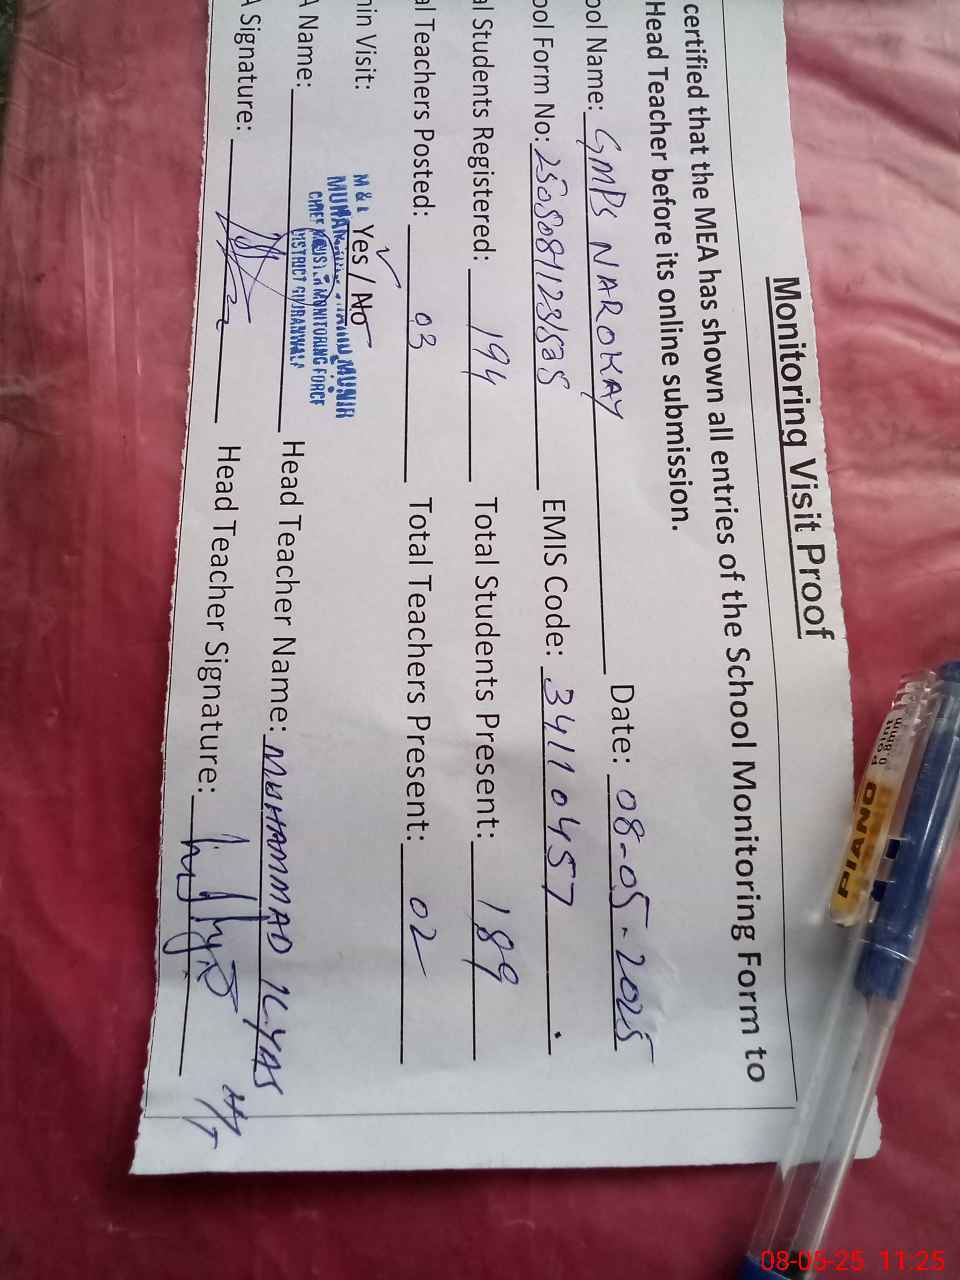 Monitoring Visit Proof
certified that the MEA has shown all entries of the School Monitoring Form to
Head Teacher before its online submission.
ool Name: GMPS NAROKAY Date: 08-05-2025
ool Form No: EMIS Code: 34110457
al Students Registered: 194 Total Students Present: 189
al Teachers Posted: 03 Total Teachers Present: 02
min Visit: Yes / No
M & E
MUNIR
CHIEF MONITORING FORCE
DISTRICT GUJRANWALA
A Name: Head Teacher Name: MUHAMMAD ILYAS
A Signature: Head Teacher Signature:
H/T
PIANO
Point
0.8mm
08-05-25 11:25